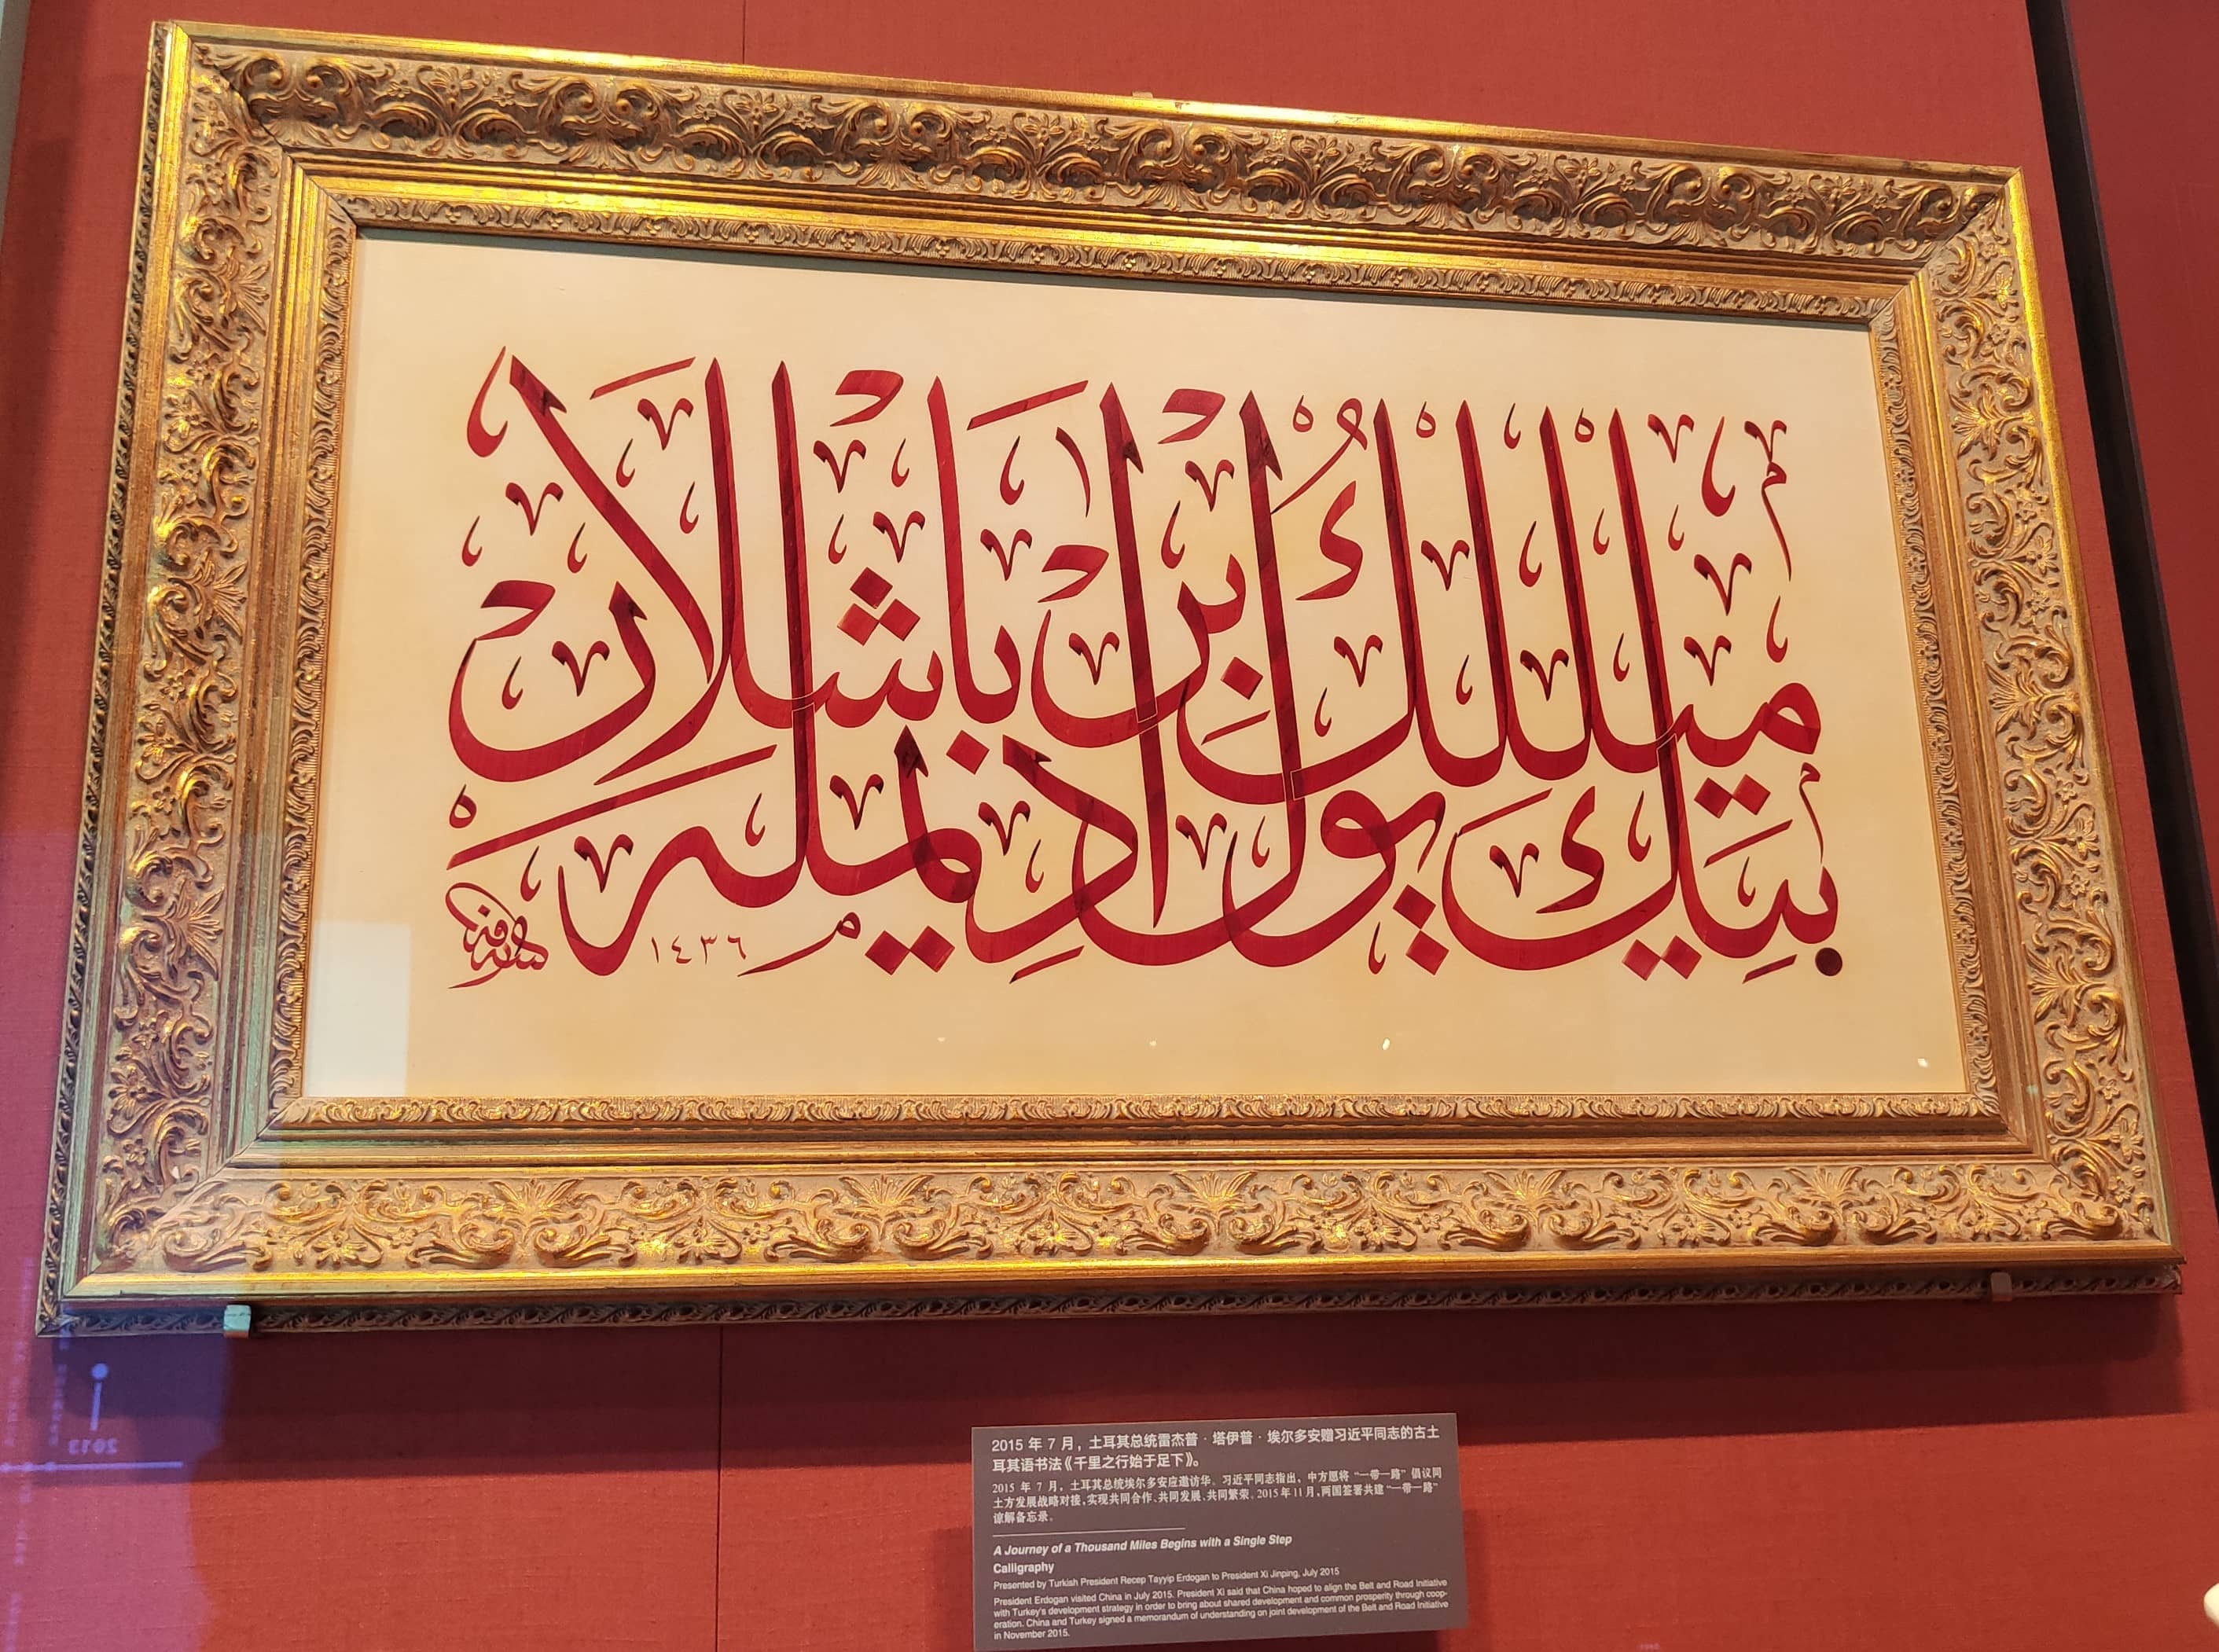 بيك ميللك يول بر اديمله باشلار
١٤٣٦
2015 年 7 月，土耳其总统雷杰普·塔伊普·埃尔多安赠习近平同志的古土
耳其语书法《千里之行始于足下》。
2015 年 7 月，土耳其总统埃尔多安应邀访华。习近平同志指出，中方愿将“一带一路”倡议同
土方发展战略对接，实现共同合作、共同发展、共同繁荣。2015年11月，两国签署共建“一带一路”
谅解备忘录。
A Journey of a Thousand Miles Begins with a Single Step
Calligraphy
Presented by Turkish President Recep Tayyip Erdogan to President Xi Jinping, July 2015
President Erdogan visited China in July 2015. President Xi said that China hoped to align the Belt and Road Initiative
with Turkey's development strategy in order to bring about shared development and common prosperity through coop-
eration. China and Turkey signed a memorandum of understanding on joint development of the Belt and Road Initiative
in November 2015.